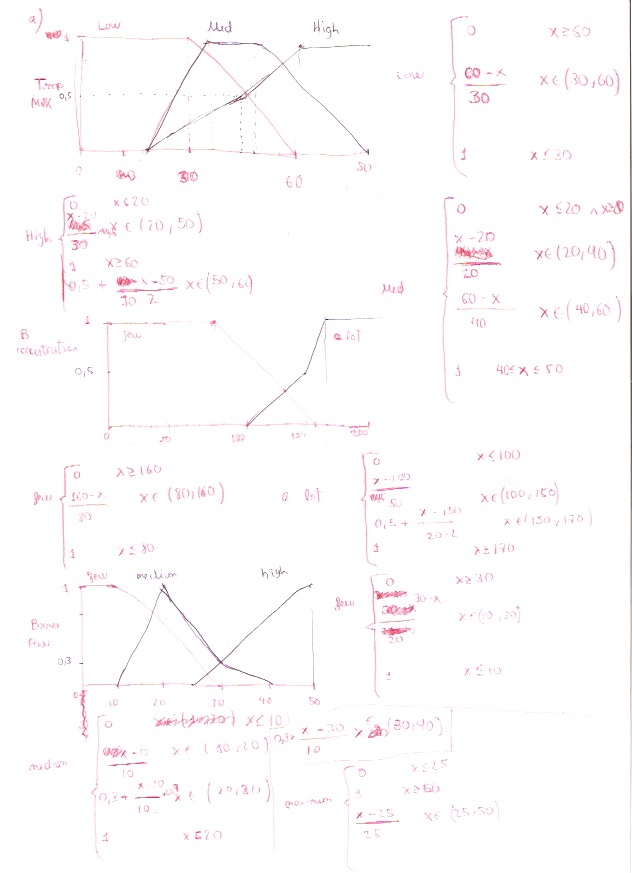 a)
Low Med High
1
Temp
0,5
0 30 60 80
Low
0 x≥60
60-x
30
x∈(30,60)
1 x≤30
High
0 x≤20
x-20
30
x∈(20,50)
1 x≥60
0,5 + x-50
10 2
x∈(50,60)
Med
0 x≤20 ∧
x-20
20
x∈(20,40)
60-x
40
x∈(40,60)
1 40≤x≤50
B
concentration
1
few a lot
0,5
0 50 100 150 200
few
0 x≥160
160-x
80
x∈(80,160)
1 x≤80
a lot
0 x≤100
x-100
50
x∈(100,150)
0,5 + x-150
20·2
x∈(150,170)
1 x≥170
few medium high
1
0,3
0 10 20 30 40 50
few
0 x≥30
30-x
20
x∈(10,30)
1 x≤10
medium
0 x≤10
10
x∈(10,20)
0,3+
10
x∈(20,30)
1 x=20
0,3 x-30
10
(30,40)
0 x≤25
1 x≥50
x-25
25
x∈(25,50)